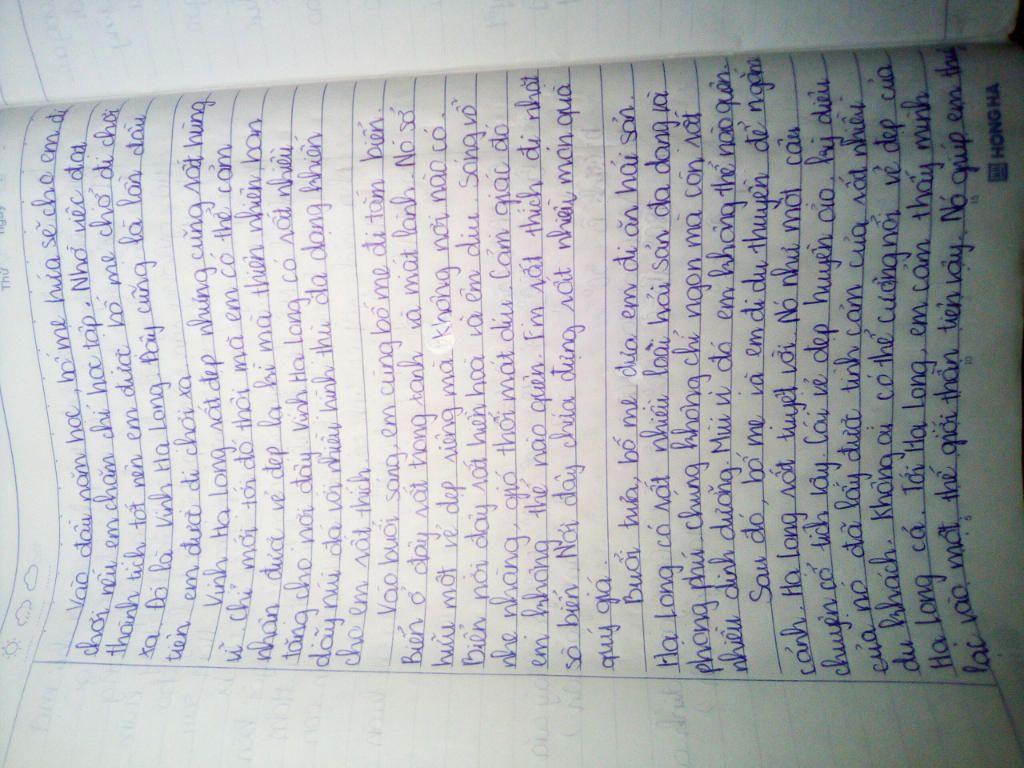 Thứ
Ngày
Vào đầu năm học, bố mẹ hứa sẽ cho em đi
chơi nếu em chăm chỉ học tập. Nhờ việc đạt
thành tích tốt nên em được bố mẹ chở đi chơi
xa. Đó là Vịnh Hạ Long. Đây cũng là lần đầu
tiên em được đi chơi xa.
Vịnh Hạ Long rất đẹp nhưng cũng rất hùng
vĩ. Chỉ mới tới đó thôi mà em có thể cảm
nhận được vẻ đẹp la kì mà thiên nhiên ban
tặng cho nơi đây. Vịnh Hạ Long có rất nhiều
dãy núi đá với nhiều hình thù đa dạng khiến
cho em rất thích.
Vào buổi sáng, em cùng bố mẹ đi tắm biển.
Biển ở đây rất trong xanh và mát lành. Nó sở
hữu một vẻ đẹp riêng mà không nơi nào có.
Biển nơi đây rất hiền hoà và êm dịu. Sóng vỗ
nhẹ nhàng, gió thổi mát dịu. Cảm giác đó
em không thể nào quên. Em rất thích đi nhặt
sò biển. Nơi đây chứa đựng rất nhiều món quà
quý giá.
Buổi trưa, bố mẹ đưa em đi ăn hải sản.
Hạ Long có rất nhiều loài hải sản đa dạng và
phong phú, chúng không chỉ ngon mà còn rất
nhiều dinh dưỡng. Mùi vị đó em không thể nào quên.
Sau đó, bố mẹ và em đi du thuyền để ngắm
cảnh. Hạ Long rất tuyệt vời. Nó như một câu
chuyện cổ tích vậy. Cái vẻ đẹp huyền ảo, kỳ diệu
của nó đã lấy được tình cảm của rất nhiều
du khách. Không ai có thể cưỡng nổi vẻ đẹp của
Hạ Long cả. Tới Hạ Long, em cảm thấy mình
lạc vào một thế giới thần tiên vậy. Nó giúp em thư
HONG HA